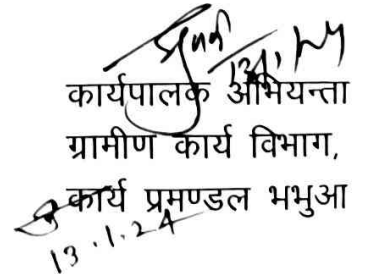 कार्यपालक अभियन्ता
ग्रामीण कार्य विभाग,
कार्य प्रमण्डल भभुआ
13.1.24